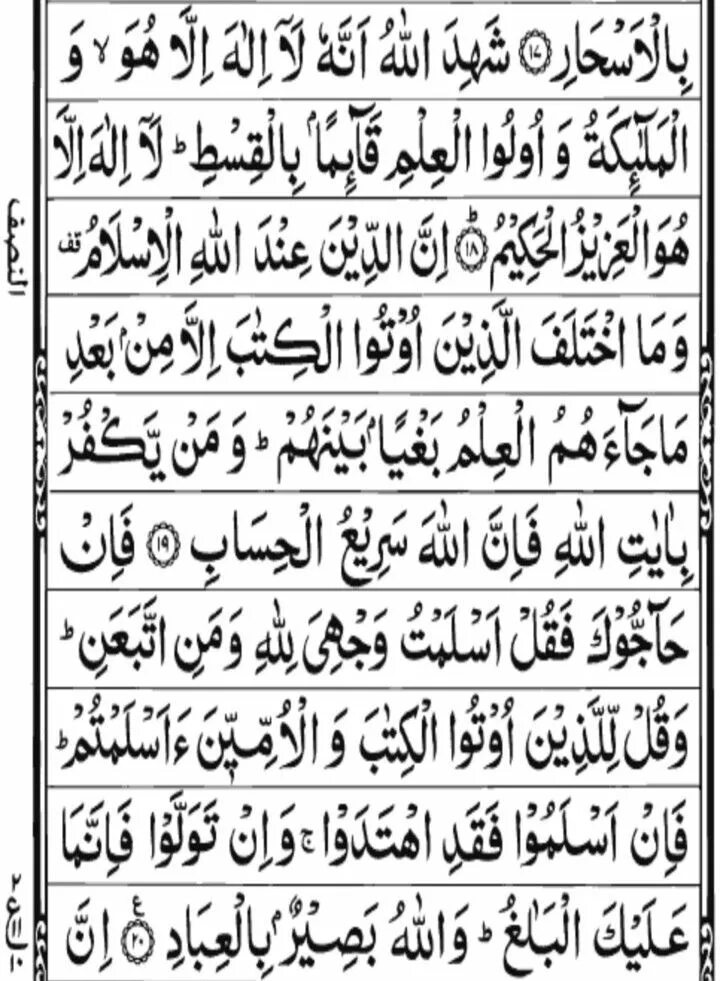 بِالۡاَسۡحَارِ ﴿۱۷﴾ شَهِدَ اللّٰهُ اَنَّهٗ لَاۤ اِلٰهَ اِلَّا هُوَ ۙ وَ
الۡمَلٰٓئِكَةُ وَ اُولُوا الۡعِلۡمِ قَآئِمًاۢ بِالۡقِسۡطِ ؕ لَاۤ اِلٰهَ اِلَّا
هُوَ الۡعَزِيۡزُ الۡحَكِيۡمُ ؕ﴿۱۸﴾ اِنَّ الدِّيۡنَ عِنۡدَ اللّٰهِ الۡاِسۡلَامُ قف
وَ مَا اخۡتَلَفَ الَّذِيۡنَ اُوۡتُوا الۡكِتٰبَ اِلَّا مِنۡۢ بَعۡدِ
مَا جَآءَ هُمُ الۡعِلۡمُ بَغۡيًاۢ بَيۡنَهُمۡ ؕ وَ مَنۡ يَّكۡفُرۡ
بِاٰيٰتِ اللّٰهِ فَاِنَّ اللّٰهَ سَرِيۡعُ الۡحِسَابِ ﴿۱۹﴾ فَاِنۡ
حَآجُّوۡكَ فَقُلۡ اَسۡلَمۡتُ وَجۡهِىَ لِلّٰهِ وَ مَنِ اتَّبَعَنِ ؕ
وَ قُلۡ لِّلَّذِيۡنَ اُوۡتُوا الۡكِتٰبَ وَ الۡاُمِّيّٖنَ ءَاَسۡلَمۡتُمۡ ؕ
فَاِنۡ اَسۡلَمُوۡا فَقَدِ اهۡتَدَوْا ۚ وَ اِنۡ تَوَلَّوۡا فَاِنَّمَا
عَلَيۡكَ الۡبَلٰغُ ؕ وَ اللّٰهُ بَصِيۡرٌۢ بِالۡعِبَادِ ﴿۲۰﴾ ع اِنَّ
النصف